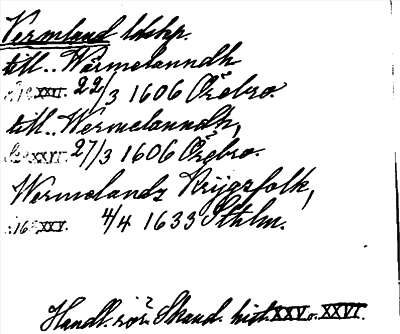 Vermland lkskp.
till.. Wärmelanndh
XXVI. 22/3 1606 Örebro.
till.. Wermelanndh,
XXVI. 27/3 1606 Örebro.
Wermelandz Krijgsfolk,
XXV. 4/4 1633 Sthlm.
Handl. rör. Skand. hist. XXV o. XXVI.